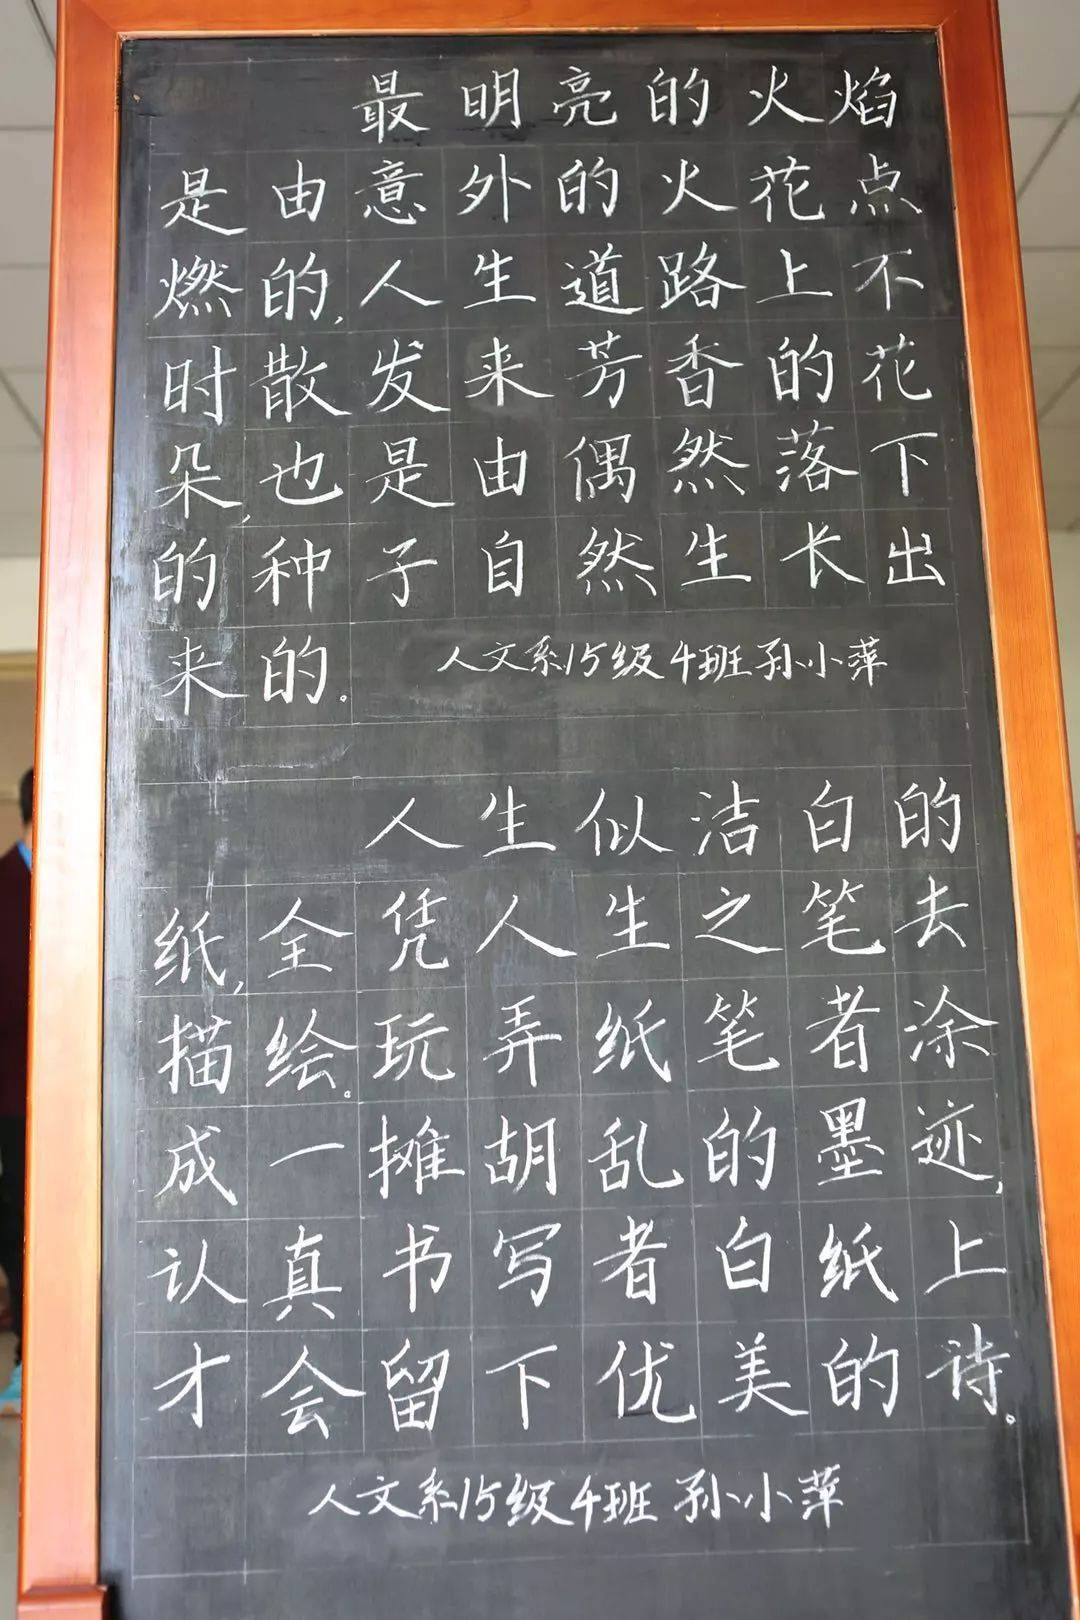 最明亮的火焰
是由意外的火花点
燃的,人生道路上不
时散发来芳香的花
朵,也是由偶然落下
的种子自然生长出
来的。
人文系15级4班孙小萍
人生似洁白的
纸,全凭人生之笔去
描绘。玩弄纸笔者涂
成一摊胡乱的墨迹,
认真书写者白纸上
才会留下优美的诗。
人文系15级4班孙小萍